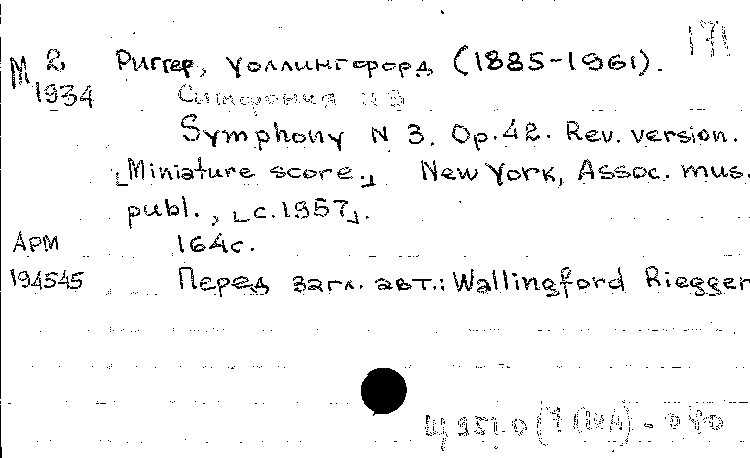 171
М 2 Риггер, Уоллингфорд (1885-1961).
1934 Симфония N 3
Symphony N 3. Op.42. Rev. version.
[Miniature score.] New York, Assoc. mus.
publ., [c.1957].
АРМ 164с.
194545 Перед загл. авт.: Wallingford Riegger
Щ951.0(7 США)-040